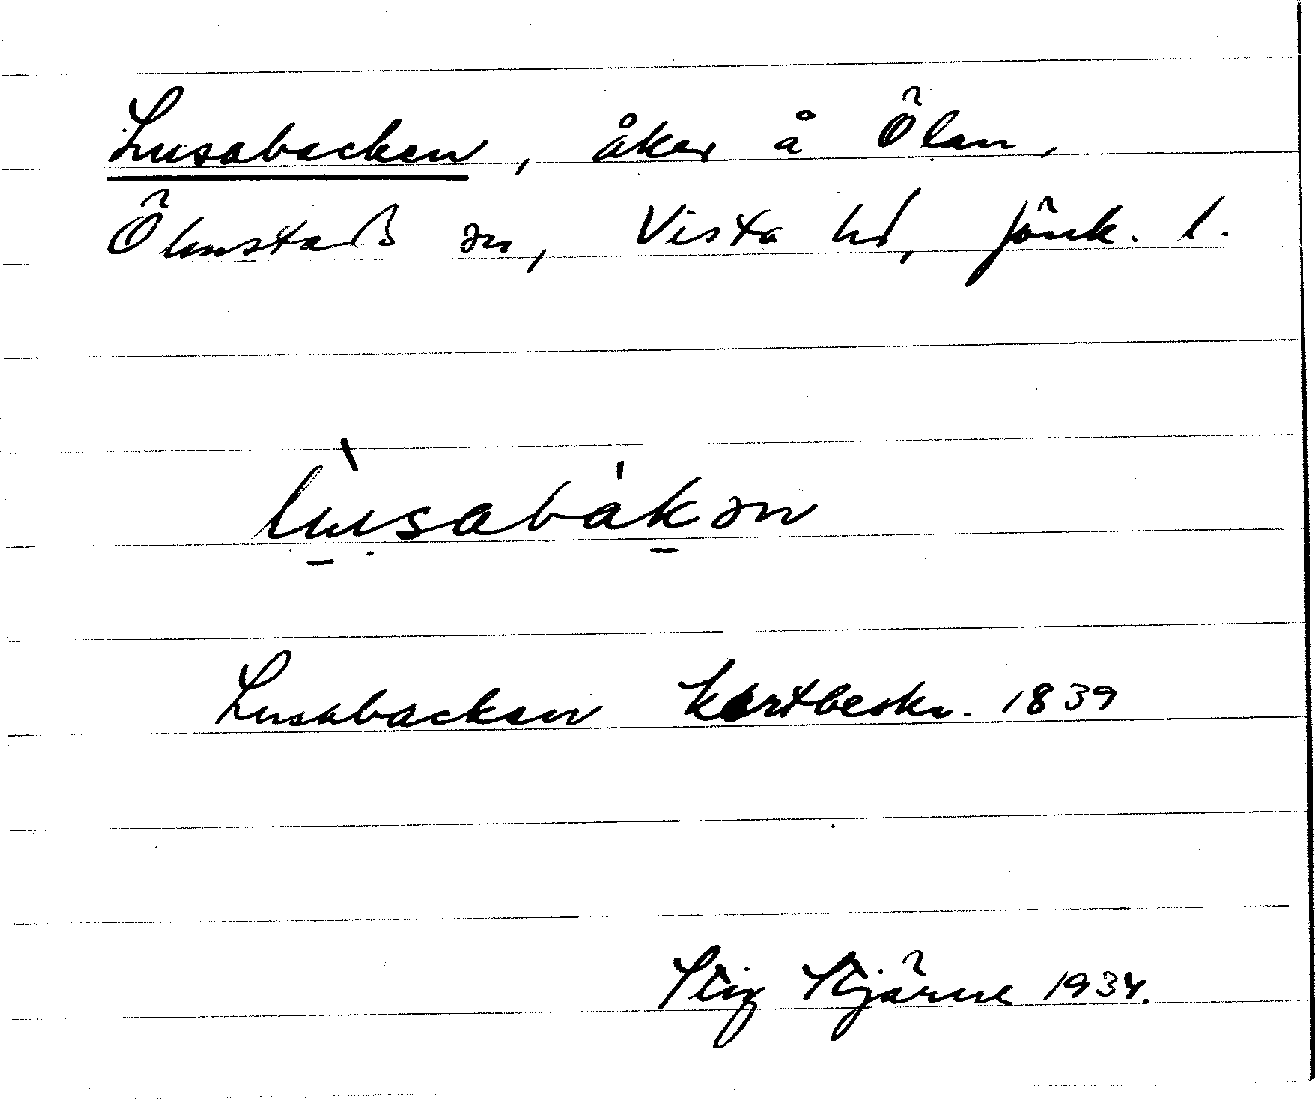 Lusabacken, åker å Ölan,
Ölmstads sn, Vista hd, Jönk. l.
lùsabákən
Lusabacken kartbeskr. 1839
Stig Stjärne 1934.